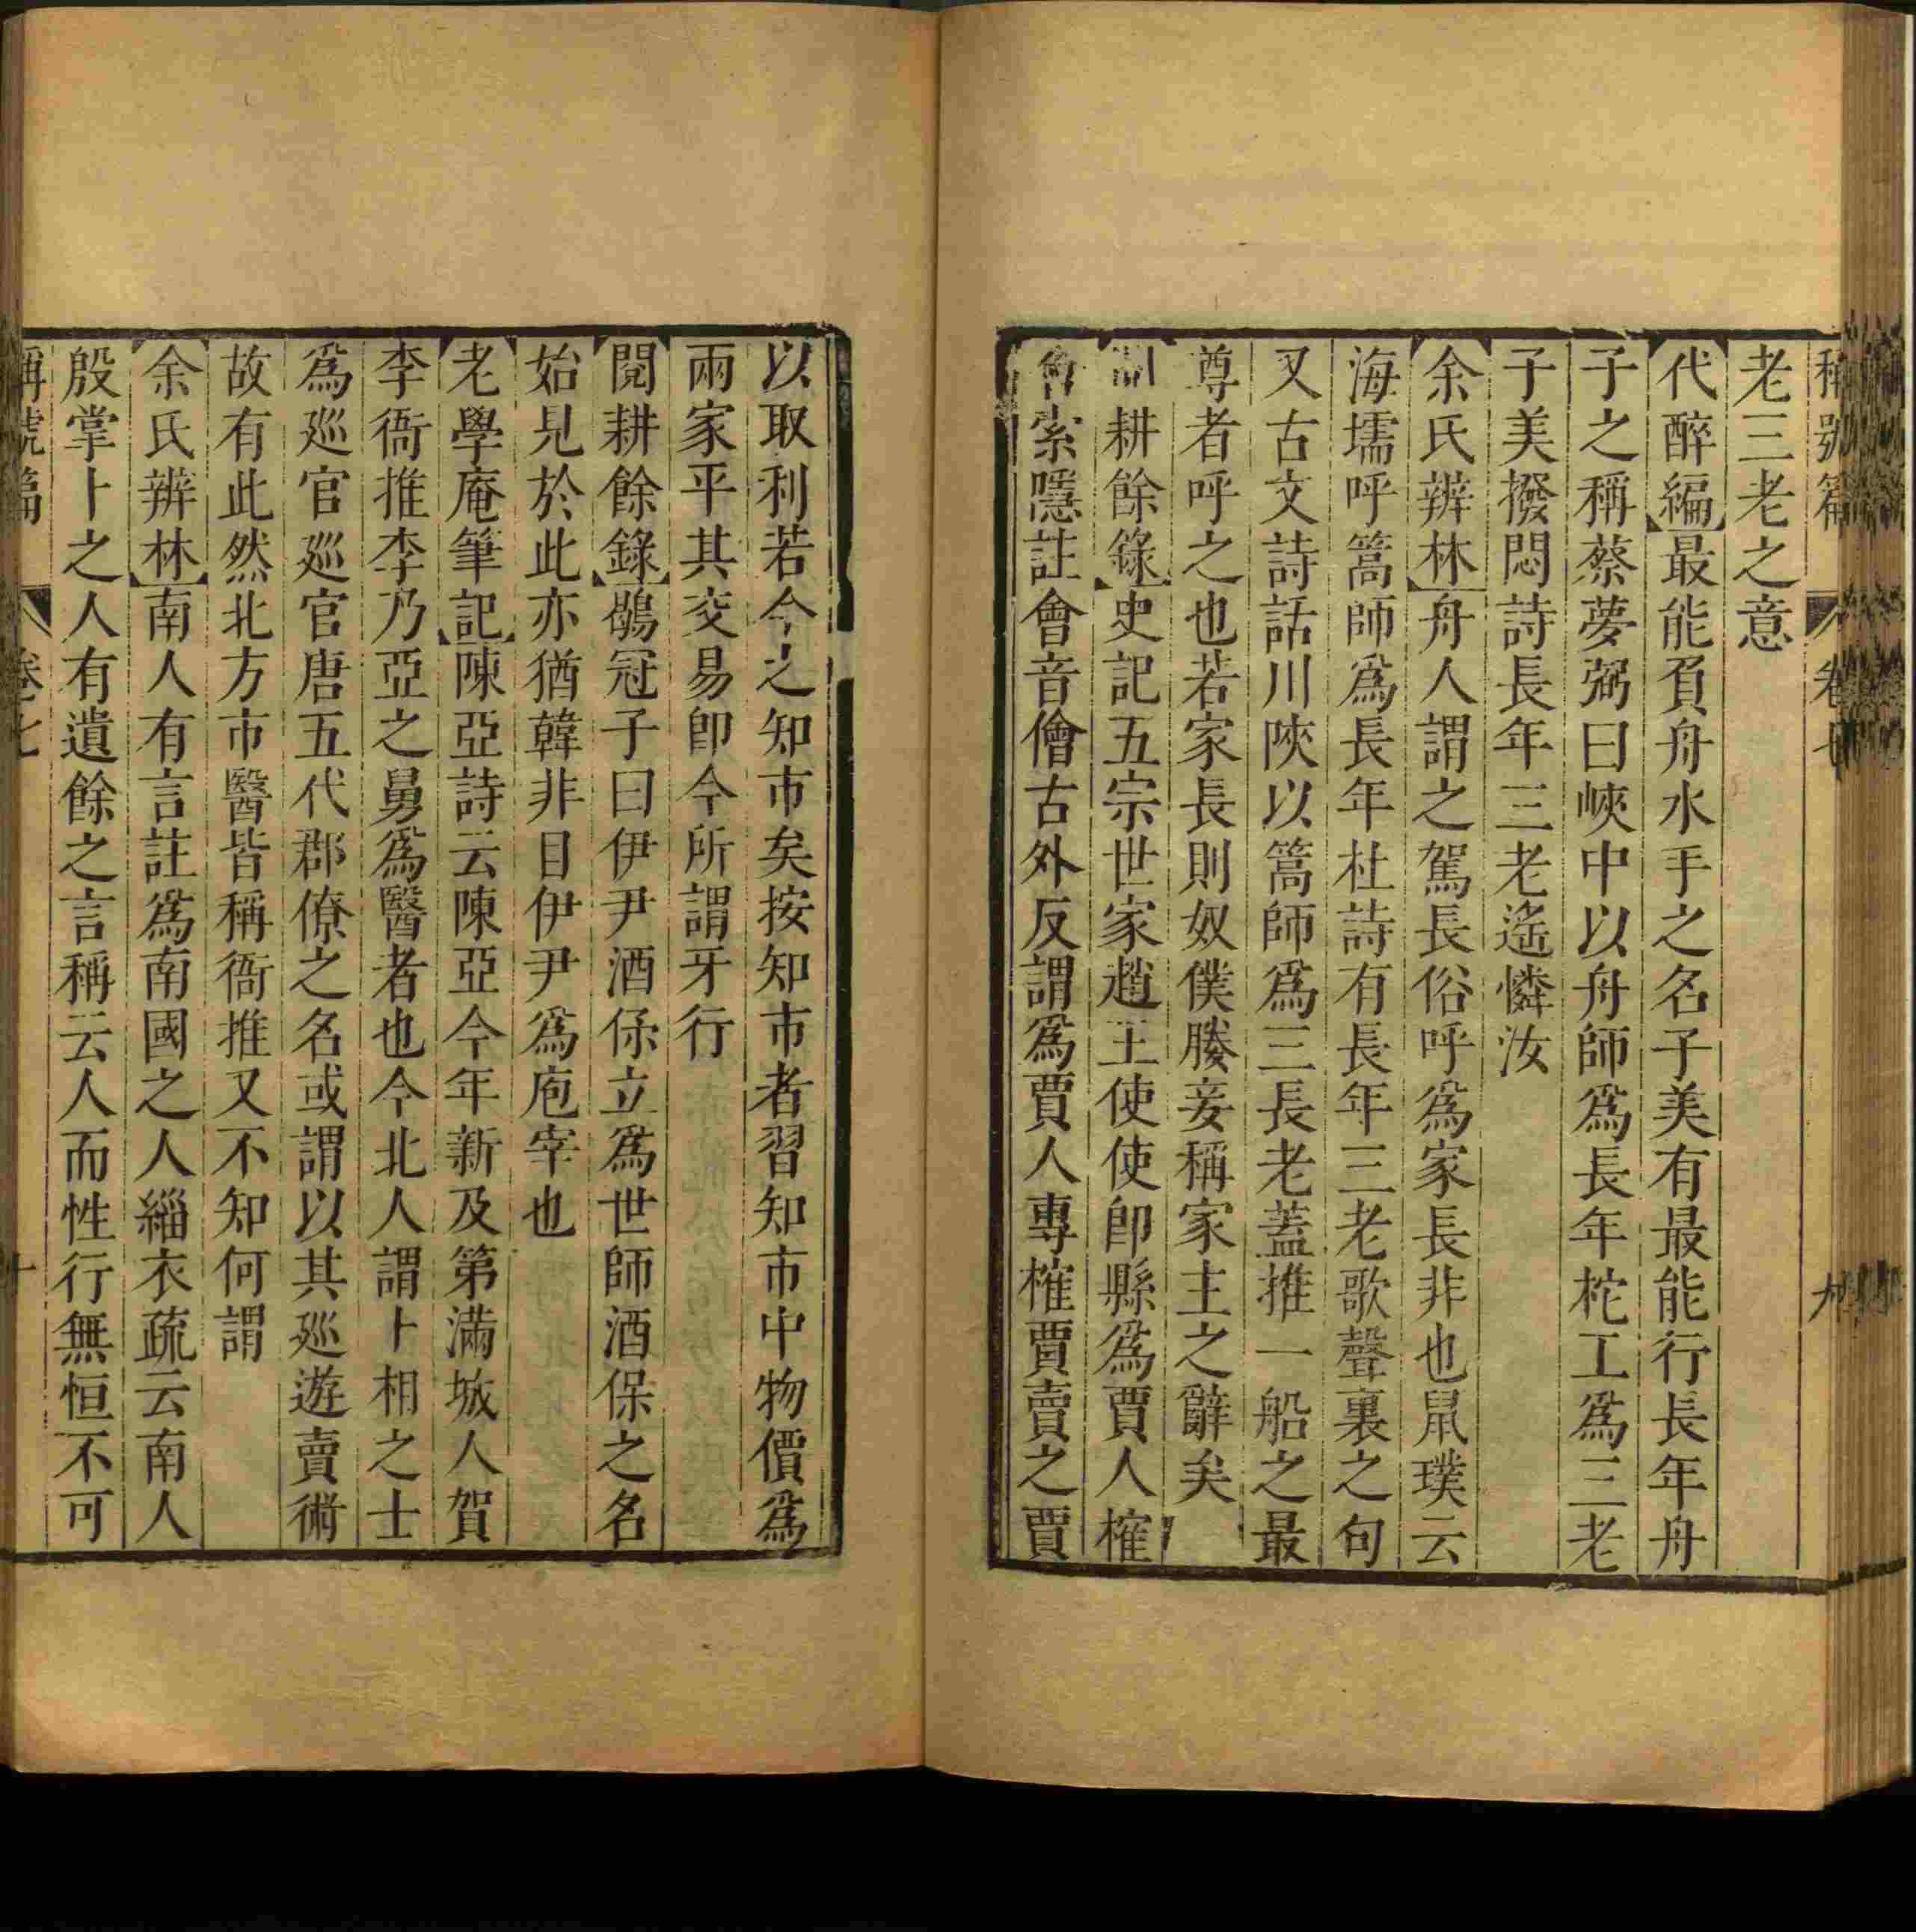 稱號篇 卷七 九
老三老之意
代醉編最能負舟水手之名子美有最能行長年舟
子之稱蔡夢弼曰峽中以舟師爲長年柁工爲三老
子美撥悶詩長年三老遙憐汝
余氏辨林舟人謂之駕長俗呼爲家長非也鼠璞云
海壖呼篙師爲長年杜詩有長年三老歌聲裏之句
又古文詩話川陜以篙師爲三長老蓋推一船之最
尊者呼之也若家長則奴僕媵妾稱家主之辭矣
耕餘錄史記五宗世家趙王使使卽縣爲賈人榷
會索隱註會音儈古外反謂爲賈人專榷賈賣之賈
以取利若今之知市矣按知市者習知市中物價爲
兩家平其交易卽今所謂牙行
閱耕餘錄鶡冠子曰伊尹酒保立爲世師酒保之名
始見於此亦猶韓非目伊尹爲庖宰也
老學庵筆記陳亞詩云陳亞今年新及第滿城人賀
李衙推李乃亞之舅爲醫者也今北人謂卜相之士
爲廵官廵官唐五代郡僚之名或謂以其廵遊賣術
故有此然北方市醫皆稱衙推又不知何謂
余氏辨林南人有言註爲南國之人緇衣疏云南人
殷掌卜之人有遺餘之言稱云人而性行無恒不可
稱號篇 卷七 十